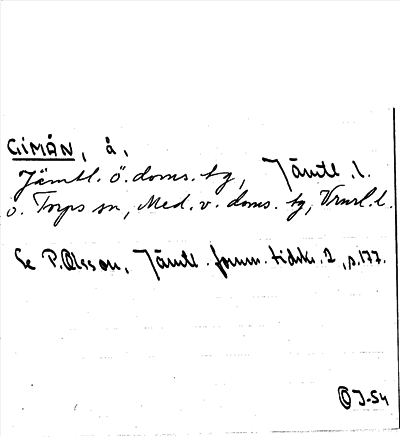 GIMÅN, å,
Jämtl. ö. doms. tg, Jämtl. l.
o. Torps sn, Med. v. doms. tg, Vnrl. l.
Se P. Olsson, Jämtl. fornm. tidskr. 2, s. 177.
J-54